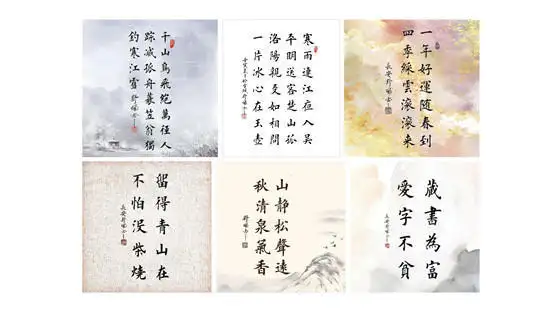 千山鳥飛絕萬徑人
踪滅孤舟蓑笠翁獨
釣寒江雪
寒雨連江夜入吳
平明送客楚山孤
洛陽親友如相問
一片冰心在玉壺
一年好運隨春到
四季綵雲滾滾来
長安
留得青山在
不怕沒柴燒
長安
山静松聲遠
秋清泉氣香
藏書為富
愛字不貧
長安